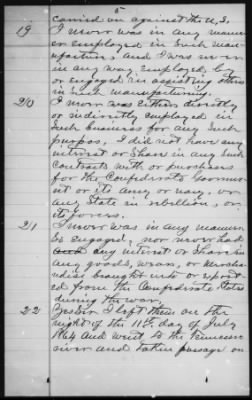 5
carried on against the U.S.
19 I never was in any manner
employed in such man-
ufacture, and I was never
in any way employed by
or engaged in assisting others
in such manufacturing.
20 I never was either directly
or indirectly employed in
such business for any such
purpose, I did not have any
interest or share in any such
contracts with or purchases
for the Confederate Governm-
ent or its army or navy, or
any State in rebellion, or
its forces.
21 I never was in any manner
so engaged, nor never had
any interest or share in
any goods, wares, or mercha-
ndise brought into or export-
ed from the Confederate States
during the war.
22 Yes Sir. I left them on the
night of the 11th day of July
1864 and went to the Tennessee
river and taken passage on